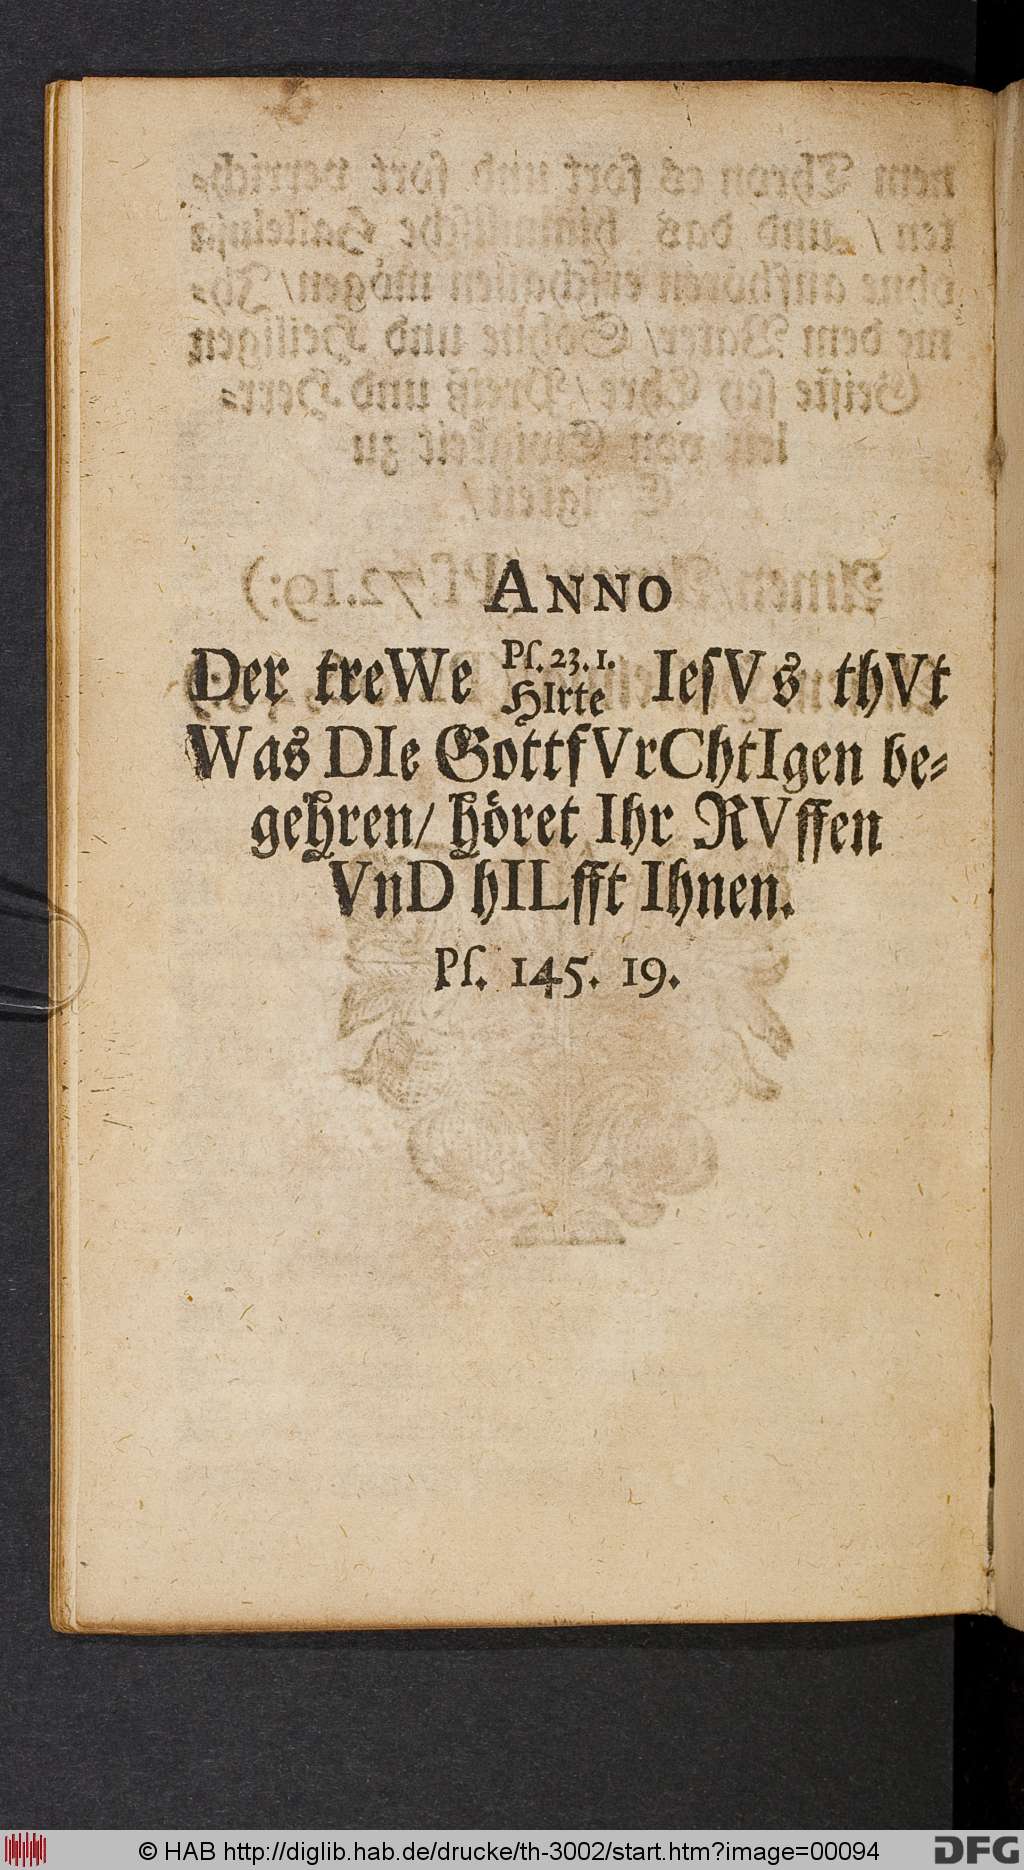 ANNO
Der treWe Pſ. 23. 1. HIrte IeſVs thVt
Was DIe GottfVrChtIgen be⸗
gehren/ höret Ihr RVffen
VnD hILfft Ihnen.
Pſ. 145. 19.
© HAB http://diglib.hab.de/drucke/th-3002/start.htm?image=00094
DFG